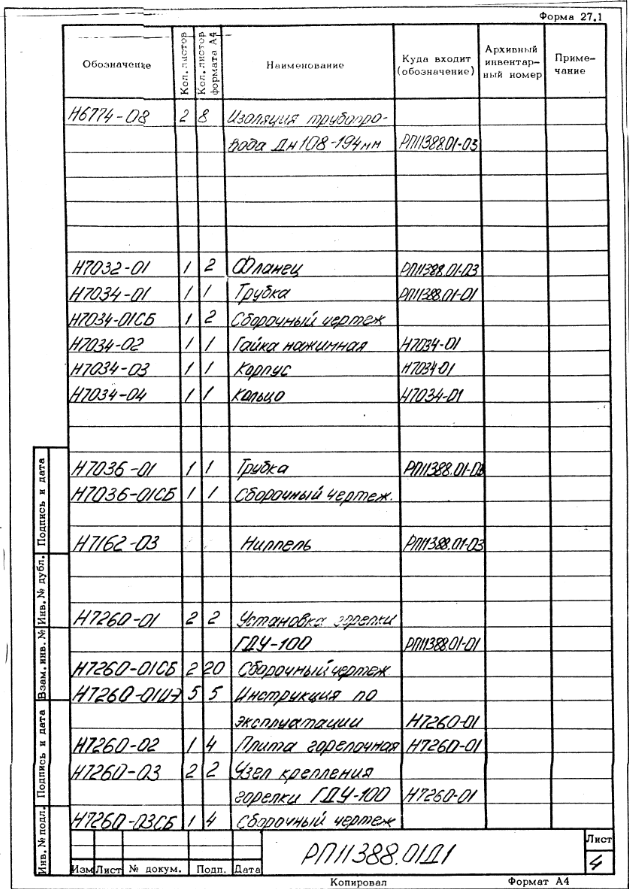 Форма 27.1
Обозначение Кол. листов Кол. листов формата А4 Наименование Куда входит (обозначение) Архивный инвентарный номер Примечание
Н6774-08 2 8 Изоляция трубопро-
вода Дн108-194мм РП11388.01-03
Н7032-01 1 2 Фланец РП11388.01-03
Н7034-01 1 1 Трубка РП11388.01-01
Н7034-01СБ 1 2 Сборочный чертеж
Н7034-02 1 1 Гайка нажимная Н7034-01
Н7034-03 1 1 Корпус Н7034-01
Н7034-04 1 1 Кольцо Н7034-01
Н7036-01 1 1 Трубка
Н7036-01СБ 1 1 Сборочный чертеж.
Н7162-03 Ниппель РП11388.01-03
Н7260-01 2 2 Установка горелки
ГДУ-100 РП11388.01-01
Н7260-01СБ 2 20 Сборочный чертеж
Н7260-01ИЭ 5 5 Инструкция по
эксплуатации Н7260-01
Н7260-02 1 4 Плита горелочная Н7260-01
Н7260-03 2 2 Узел крепления
горелки ГДУ-100 Н7260-01
Н7260-03СБ 1 4 Сборочный чертеж
Инв. № подл. Подпись и дата Взам. инв. № Инв. № дубл. Подпись и дата
Изм Лист № докум. Подп. Дата
РП11388.01Д1
Лист
4
Копировал Формат А4